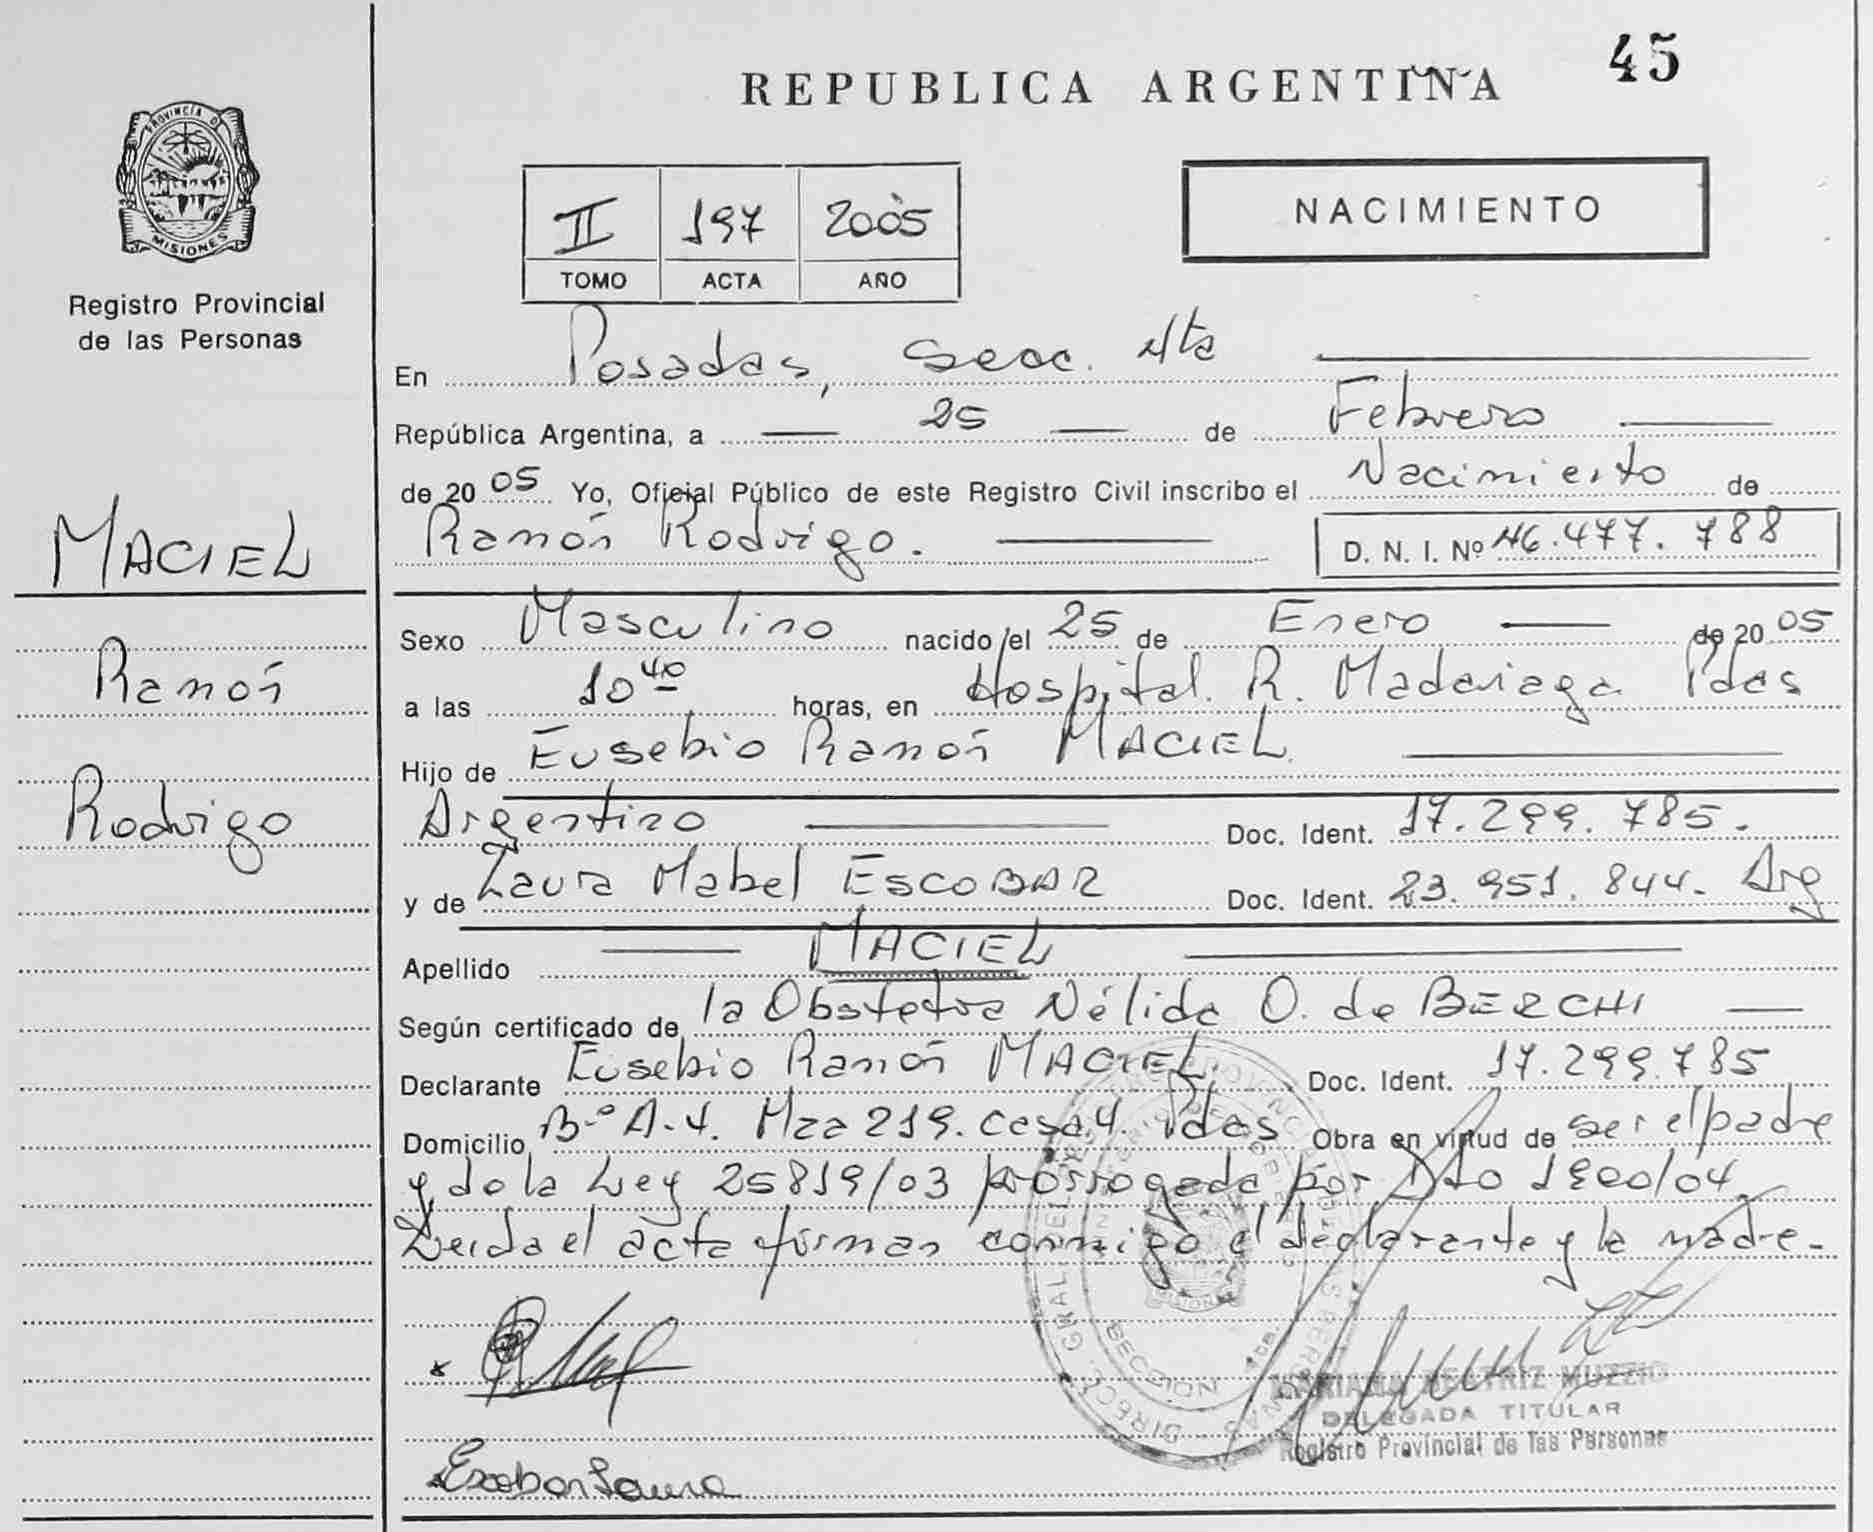 45
REPUBLICA ARGENTINA
PROVINCIA DE
MISIONES
Registro Provincial
de las Personas
II 197 2005
TOMO ACTA AÑO
NACIMIENTO
MACIEL
Ramón
Rodrigo
En Posadas, Secc. 4ta
República Argentina, a 25 de Febrero
de 2005 Yo, Oficial Público de este Registro Civil inscribo el Nacimiento de
Ramón Rodrigo. D. N. I. Nº 46.477.788
Sexo Masculino nacido el 25 de Enero de 2005
a las 10 40 horas, en Hospital. R. Madariaga Pdas
Hijo de Eusebio Ramón MACIEL.
Argentino Doc. Ident. 17.299.785.
y de Laura Mabel ESCOBAR Doc. Ident. 23.951.844. Arg
Apellido MACIEL
Según certificado de la Obstetra Nélida O. de BERCHI
Declarante Eusebio Ramón MACIEL. Doc. Ident. 17.299.785
Domicilio Bº A-4. Mza 219. casa 4. Pdas Obra en virtud de ser el padre
y de la Ley 25819/03 prorrogada por Dto 1900/04
Leida el acta firman conmigo el declarante y la madre.
Escobar Laura
MARIANA BEATRIZ MUZZIO
DELEGADA TITULAR
Registro Provincial de las Personas